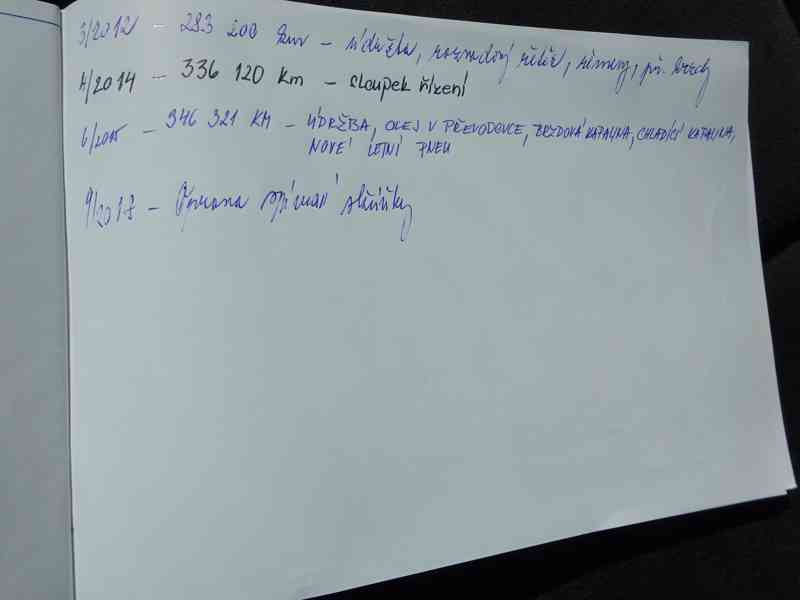 3/2012 - 283 200 km - údržba, rozvodový řetěz, řemeny, př. brzdy
4/2014 - 336 120 km - sloupek řízení
6/2015 - 346 321 KM - ÚDRŽBA, OLEJ V PŘEVODOVCE, BRZDOVÁ KAPALINA, CHLADÍCÍ KAPALINA,
NOVÉ LETNÍ PNEU
9/2018 - Oprava spínací skříňky